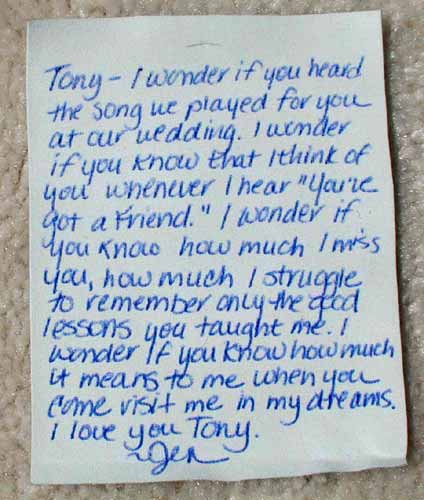 Tony - I wonder if you heard
the song we played for you
at our wedding. I wonder
if you know that I think of
you whenever I hear "You've
got a Friend." I wonder if
you know how much I miss
you, how much I struggle
to remember only the good
lessons you taught me. I
wonder if you know how much
it means to me when you
come visit me in my dreams.
I love you Tony.
~Jen